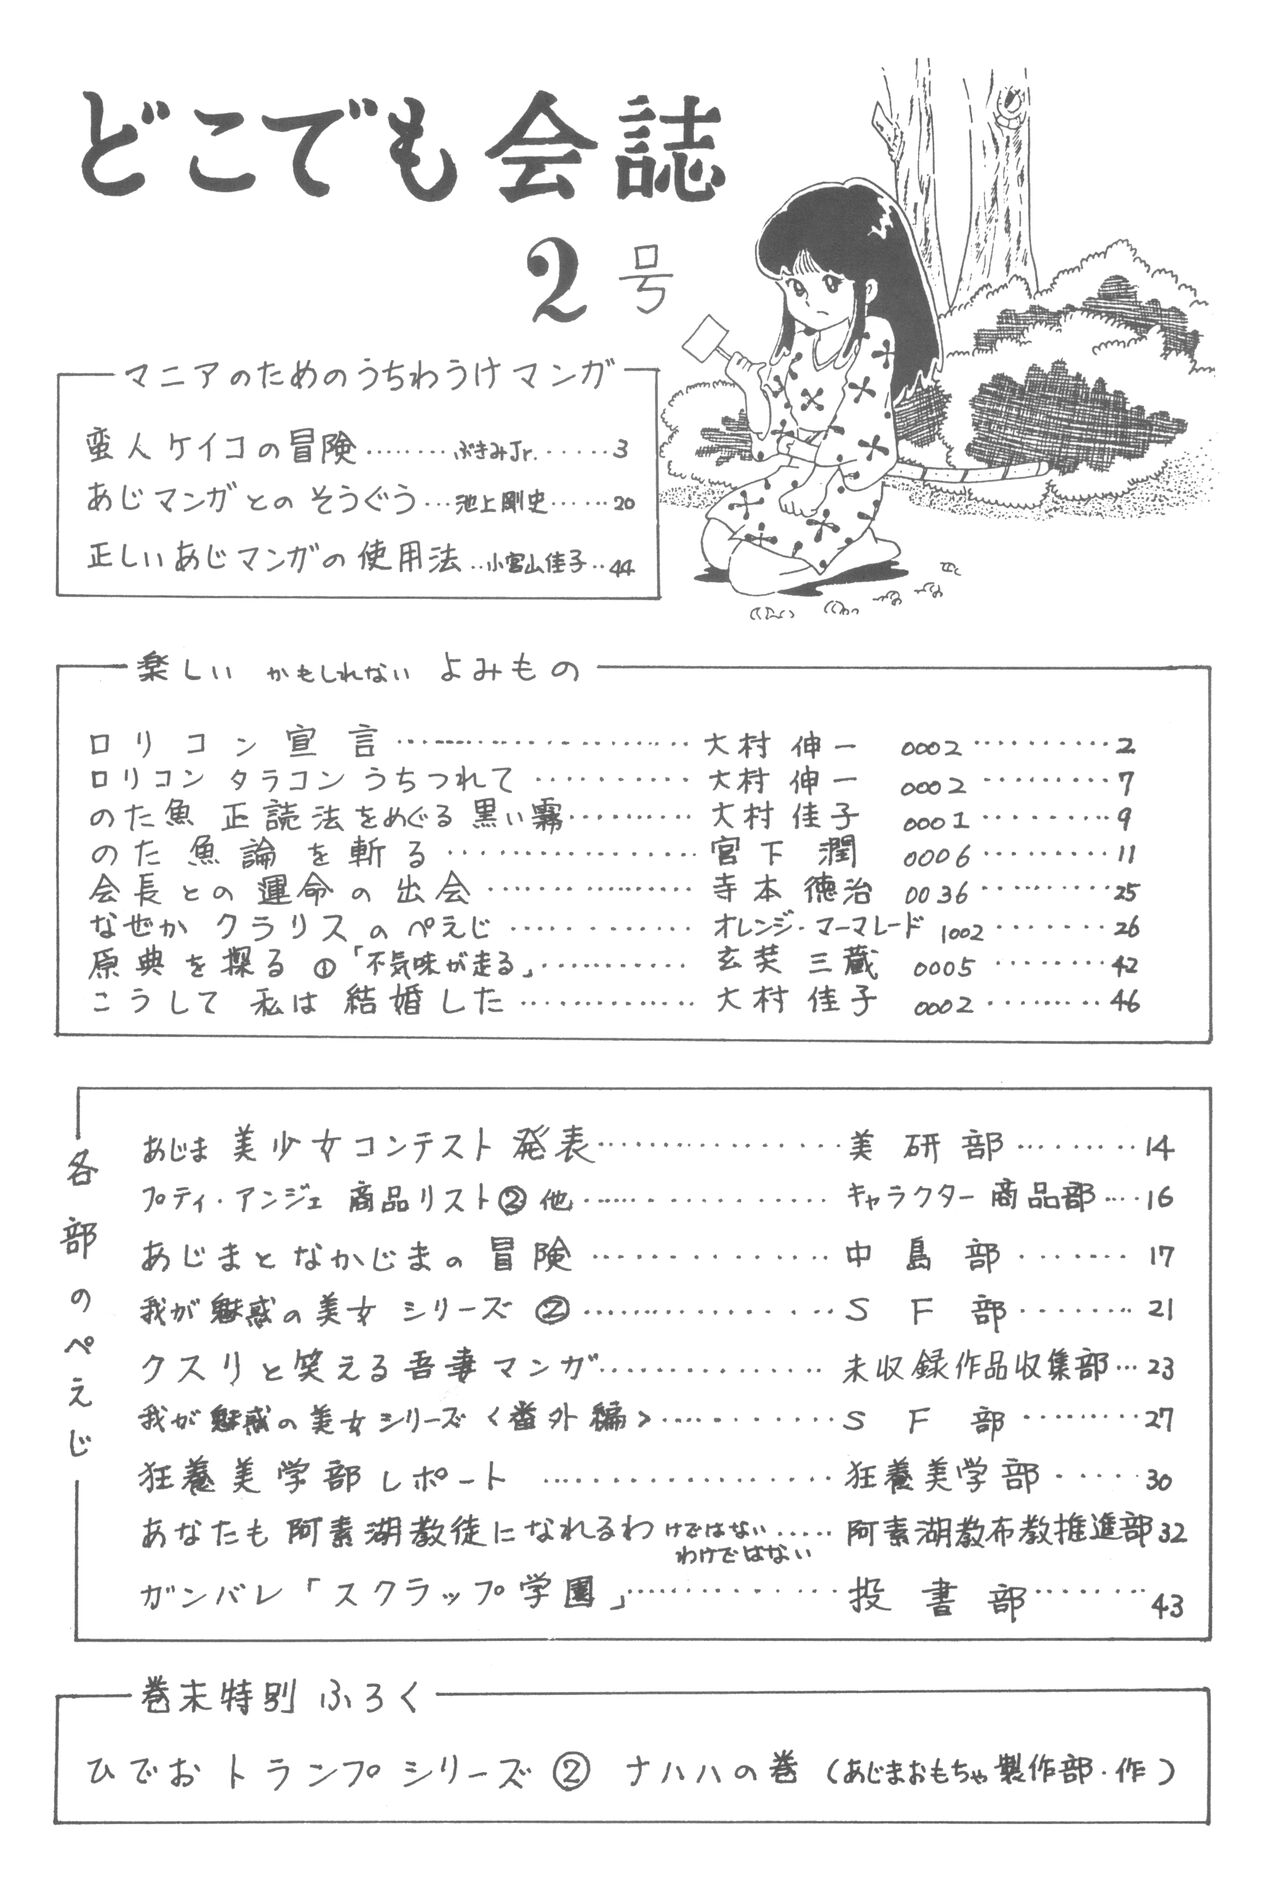 どこでも会誌
2号
マニアのためのうちわうけマンガ
蛮人ケイコの冒険………ぶきみJr.……3
あじマンガとのそうぐう…池上剛史……20
正しいあじマンガの使用法‥小宮山佳子‥44
楽しい かもしれない よみもの
ロリコン宣言……………………大村伸一 0002………2
ロリコン タラコン うちつれて…………大村伸一 0002………7
のた魚 正読法をめぐる黒い霧…………大村佳子 0001………9
のた魚論を斬る…………………宮下潤 0006………11
会長との運命の出会………………寺本徳治 0036………25
なぜか クラリスのぺえじ…………オレンジ・マーマレード 1002………26
原典を探る①「不気味が走る」…………玄奘三蔵 0005………42
こうして 私は結婚した…………大村佳子 0002………46
各部のぺえじ
あじま 美少女コンテスト発表……………美研部………14
プティ・アンジェ 商品リスト②他……………キャラクター商品部……16
あじまとなかじまの冒険……………中島部………17
我が魅惑の美女 シリーズ②……………SF部………21
クスリと笑える吾妻マンガ……………未収録作品収集部…23
我が魅惑の美女シリーズ〈番外編〉……………SF部………27
狂養美学部レポート……………狂養美学部……30
あなたも阿素湖教徒になれるわけではない……阿素湖教布教推進部32
わけではない
ガンバレ「スクラップ学園」……………投書部………43
巻末特別ふろく
ひでおトランプシリーズ② ナハハの巻（あじまおもちゃ製作部・作）